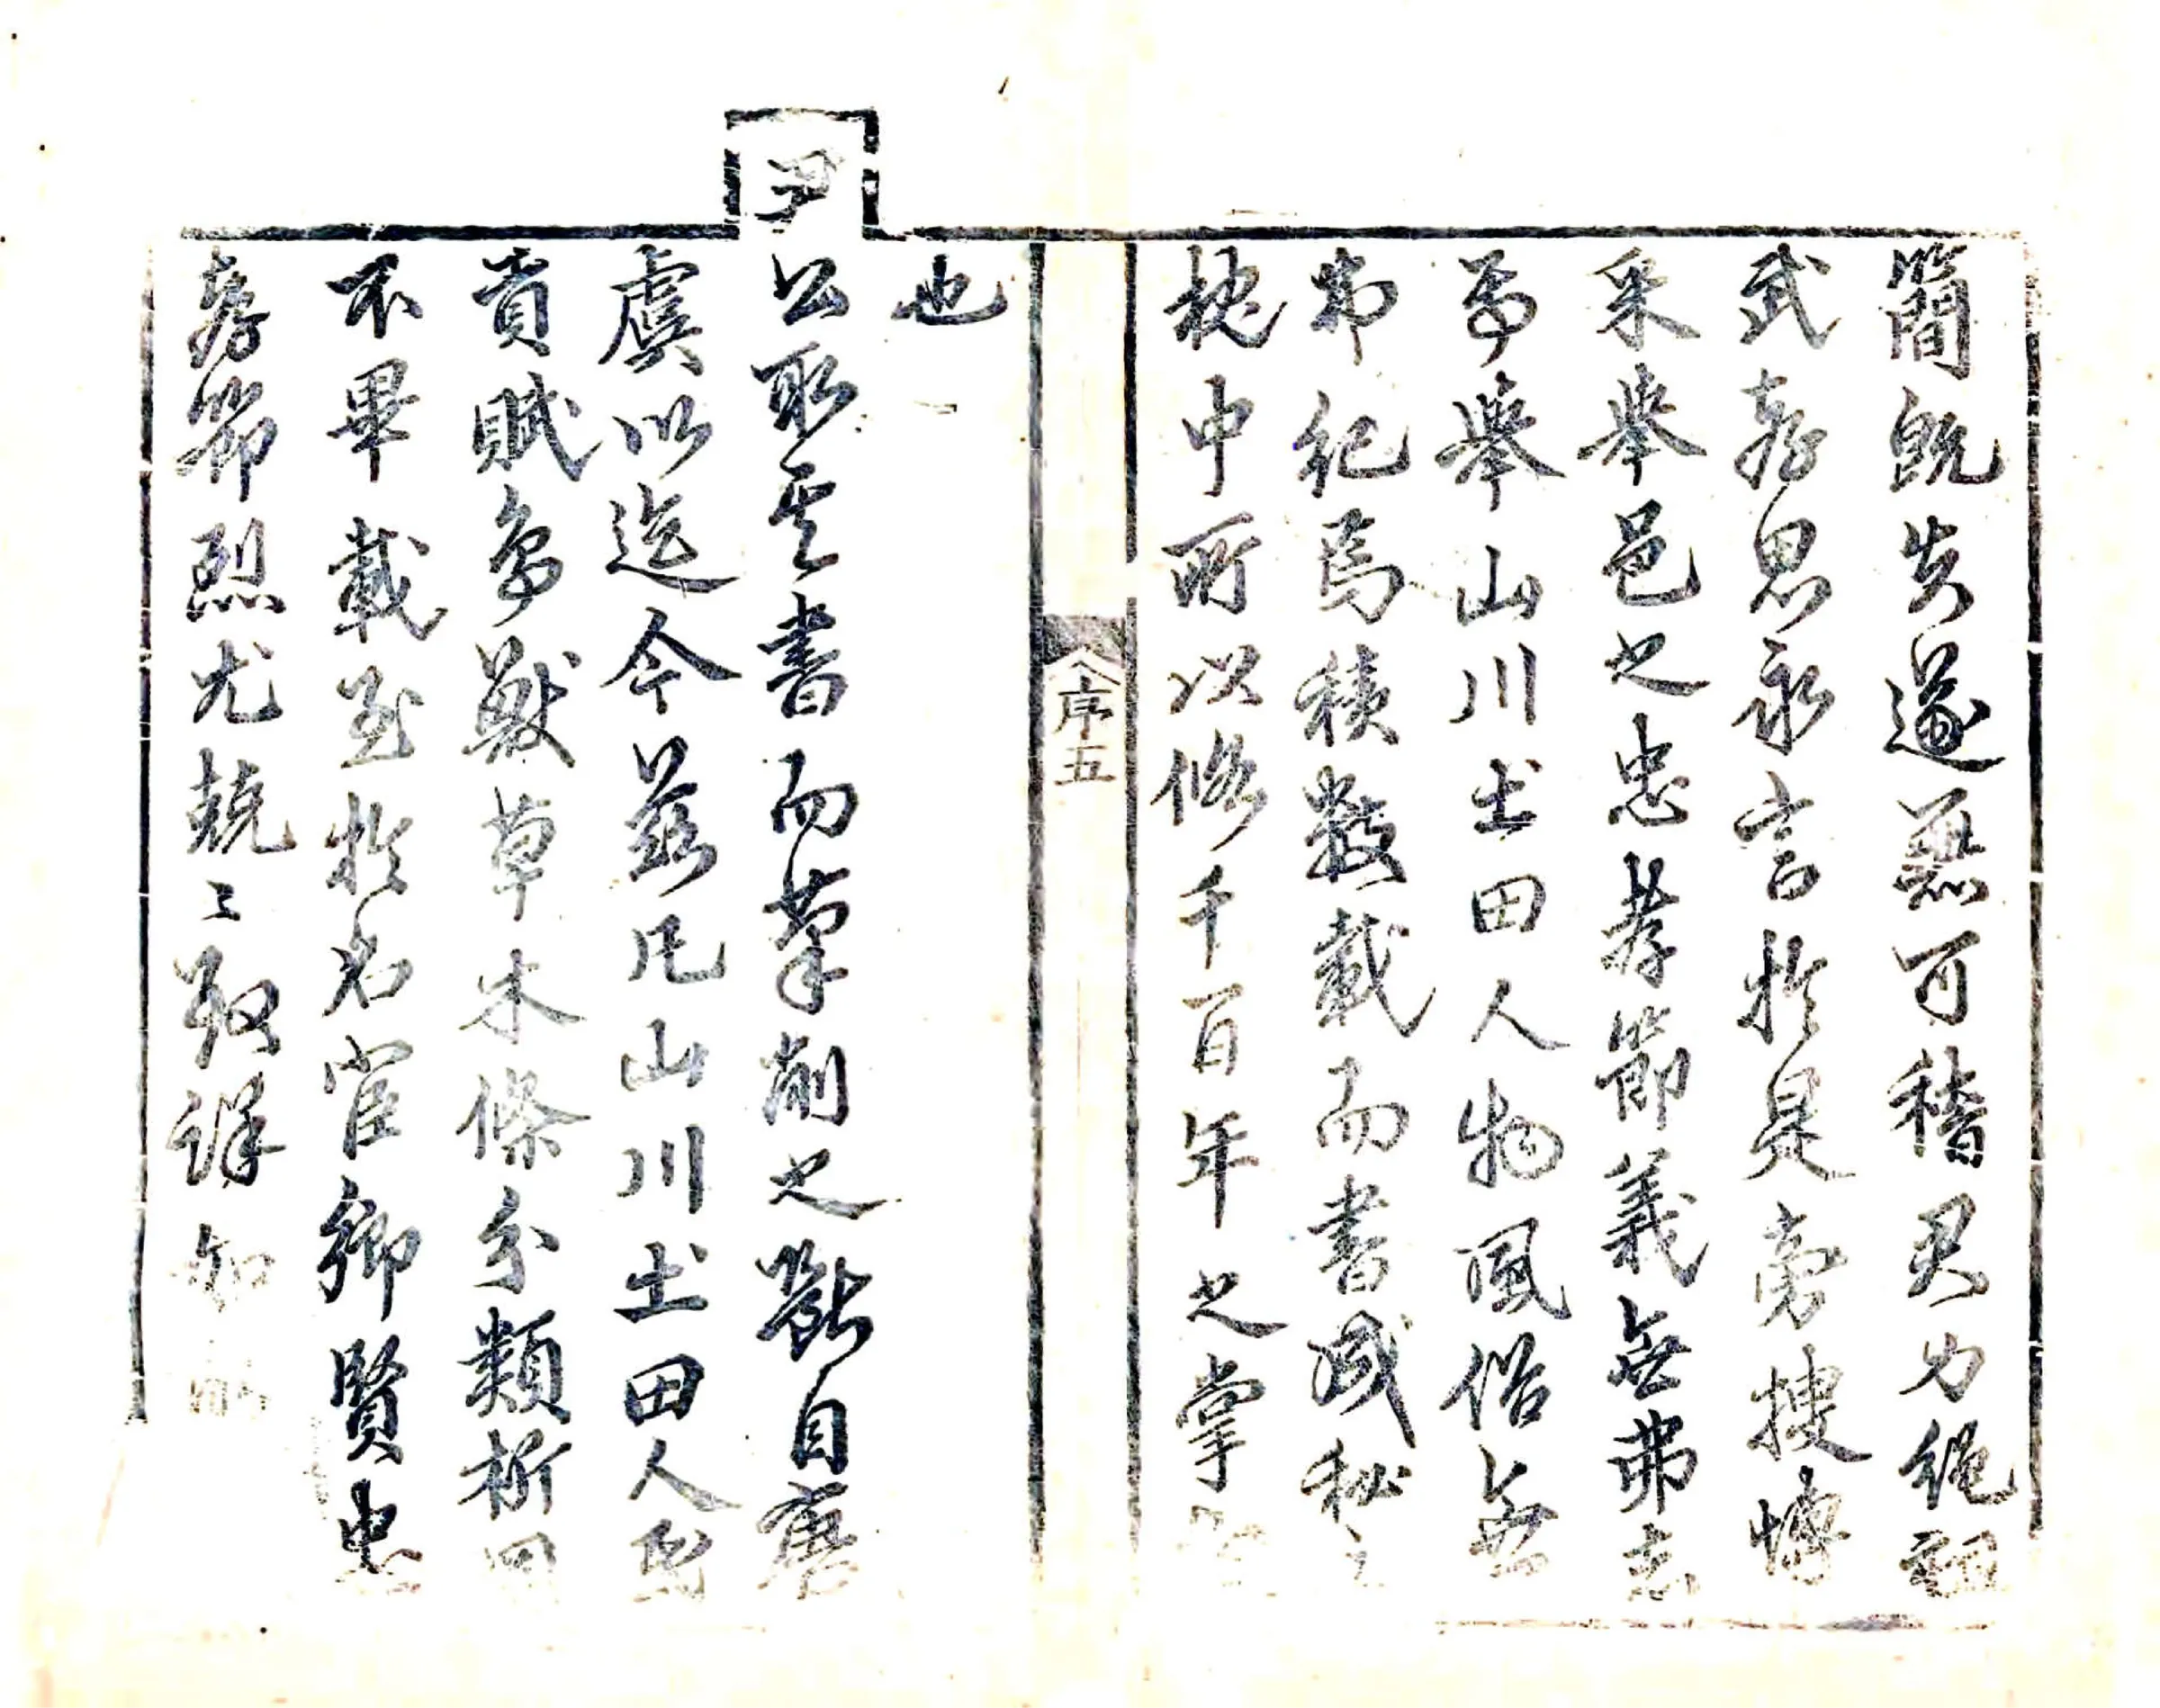 簡既失遂無可稽君力繩詞
武孝思永言於是旁搜博
采舉邑之忠孝節義無弗志
焉舉山川土田人物風俗無
弗紀焉積數載而書成秘之
枕中所以備千百年之掌
序五
也
尹公取其書而筆削之斷自唐
虞以迄今茲凡山川土田人
貢賦鳥獸草木條分類析罔
不畢載至於名宦鄉賢忠
孝節烈尤兢〻致詳